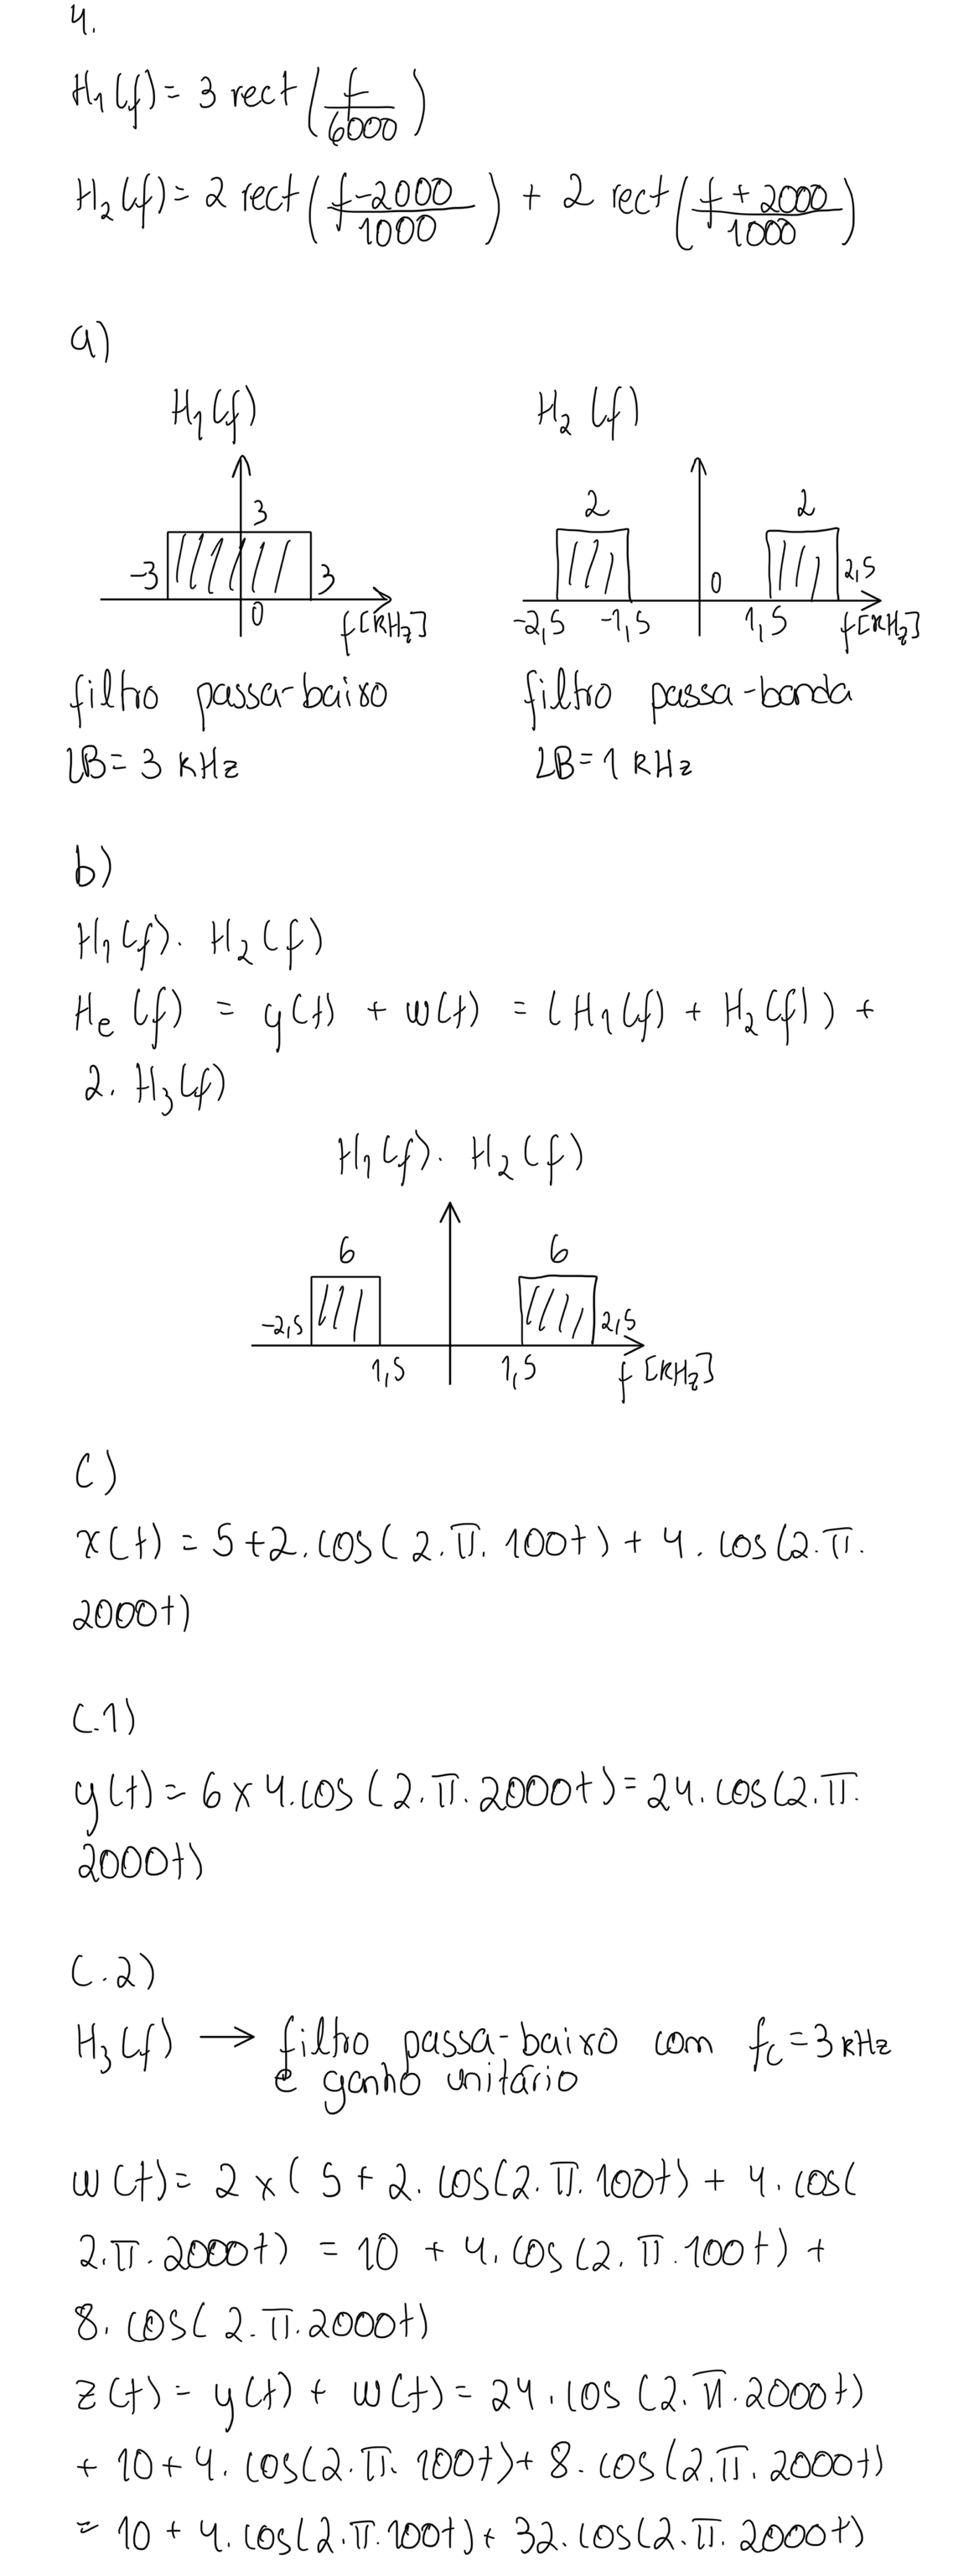 4.
H₁(f) = 3 rect(f/6000)
H₂(f) = 2 rect(f-2000/1000) + 2 rect(f+2000/1000)
a)
H₁(f)
3
-3
3
0
f[kHz]
filtro passa-baixo
LB = 3 kHz
H₂(f)
2
2
2,5
0
-2,5 -1,5 1,5 f[kHz]
filtro passa-banda
LB = 1 kHz
b)
H₁(f). H₂(f)
He(f) = y(t) + w(t) = (H₁(f) + H₂(f)) +
2. H₃(f)
H₁(f). H₂(f)
6
6
-2,5
2,5
1,5 1,5 f[kHz]
c)
x(t) = 5+2.cos(2.π.100t) + 4.cos(2.π.
2000t)
c.1)
y(t) = 6×4.cos(2.π.2000t) = 24.cos(2.π.
2000t)
c.2)
H₃(f) → filtro passa-baixo com fc = 3 kHz
e ganho unitário
w(t) = 2×(5+2.cos(2.π.100t) + 4.cos(
2.π.2000t) = 10 + 4.cos(2.π.100t) +
8.cos(2.π.2000t)
z(t) = y(t) + w(t) = 24.cos(2.π.2000t)
+ 10 + 4.cos(2.π.100t) + 8.cos(2.π.2000t)
= 10 + 4.cos(2.π.100t) + 32.cos(2.π.2000t)